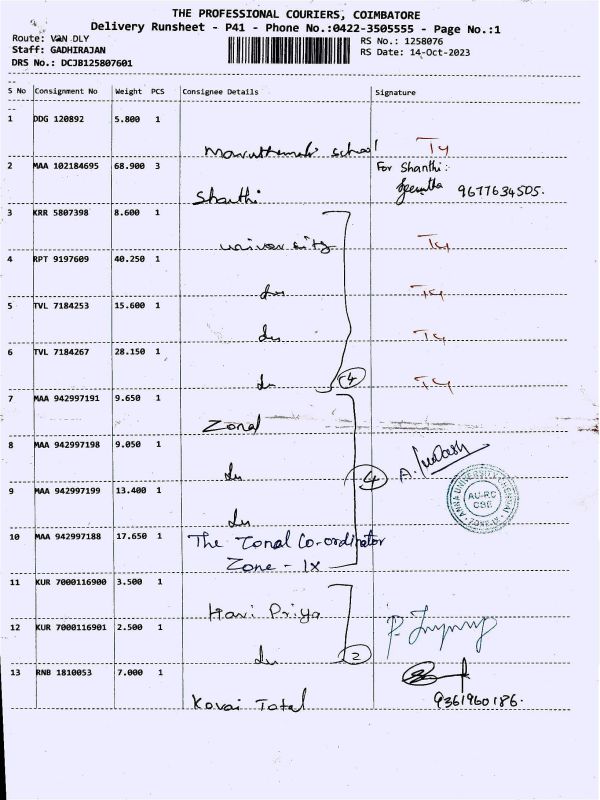 THE PROFESSIONAL COURIERS, COIMBATORE
Delivery Runsheet - P41 - Phone No.:0422-3505555 - Page No.:1
Route: VAN DLY
RS No.: 1258076
Staff: GADHIRAJAN
RS Date: 14-Oct-2023
DRS No.: DCJB125807601
S No Consignment No Weight PCS Consignee Details Signature
1 DDG 120892 5.800 1
school
2 MAA 102184695 68.900 3 For Shanthi:
Shanthi 9677634505.
3 KRR 5807398 8.600 1
university
4 RPT 9197609 40.250 1
5 TVL 7184253 15.600 1
6 TVL 7184267 28.150 1
4
7 MAA 942997191 9.650 1
Zonal
8 MAA 942997198 9.050 1
4
9 MAA 942997199 13.400 1
ANNA UNIVERSITY CHENNAI
AU-RC
COE
ZONE-IX
10 MAA 942997188 17.650 1 The Zonal Co-ordinator
Zone - IX
11 KUR 7000116900 3.500 1
Hari Priya
12 KUR 7000116901 2.500 1
2
13 RNB 1810053 7.000 1
Kovai Total 9361960186.